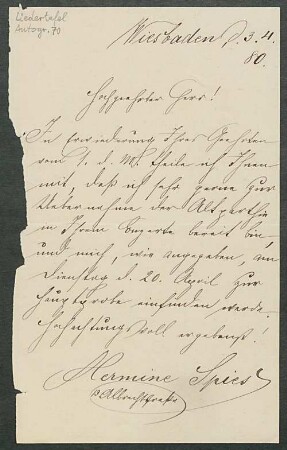 Liedertafel
Autogr. 70
Wiesbaden d. 3. 4.
80.
Hochgeehrter Herr!
In Erwiederung Ihres Geehrten
vom 1. d. M. theile ich Ihnen
mit, daß ich sehr gerne zur
Uebernahme der Altparthie
in Ihrem Conzerte bereit bin
und mich, wie angegeben, am
Dienstag d. 20. April zur
Hauptprobe einfinden werde.
Hochachtungsvoll ergebenst!
Hermine Spies